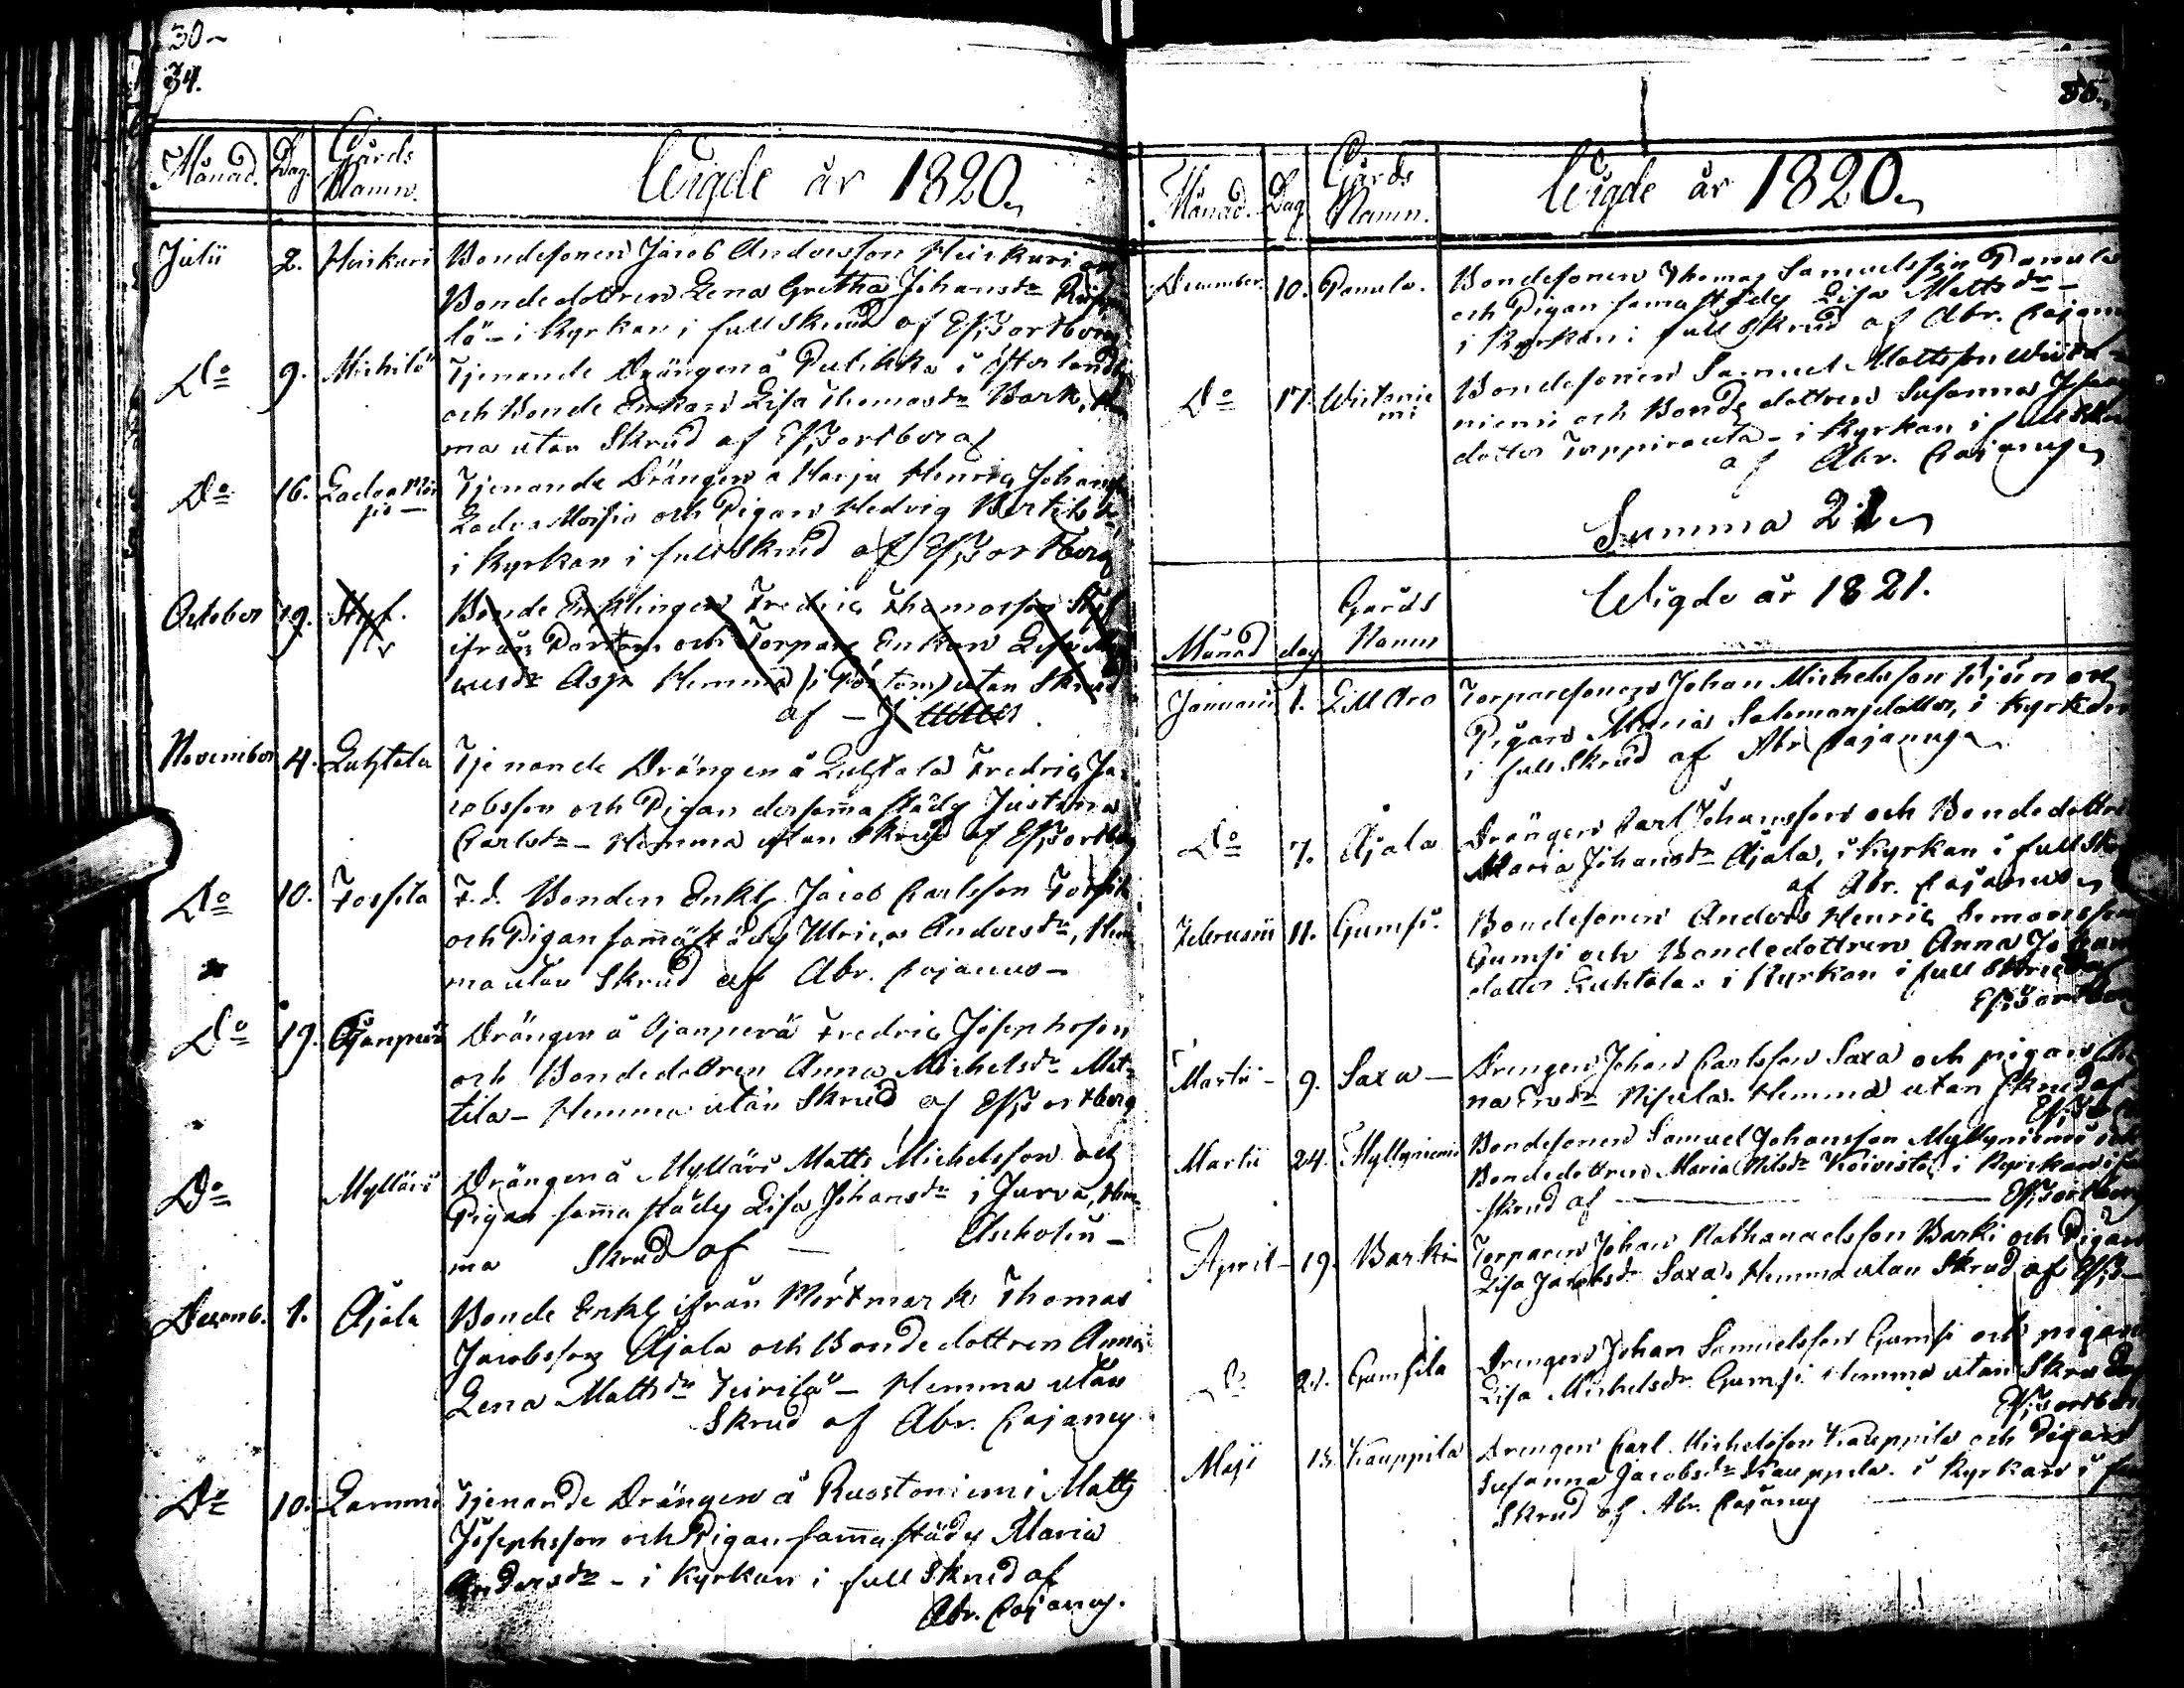 30
34.
Månad. Dag. Gårds Namn. Wigde år 1820
Julii 2. Heikuri Bondesonen Jacob Andersson Heikuri och
Bondedottren Lena Gretha Johansdr
lö - i Kyrkan i full Skrud af Es: Bortberg
Do 9. Michilö Tjenande Drängen å Pulikka i Österlandet
och Bonde Enkan Lisa Thomasdr Bark, Hem
ma utan Skrud af Es: Bortberg
Do 16. Tjenande Drängen å Harju Henric Johans
Moisio och Pigan Hedvig Bertilsdr
i Kyrkan i full Skrud af Es: Bortberg
October 19. Bonde Enklingen Fredric Thomasson
ifrån Pörtom och Torpare Enkan Lisa
Asp Hemma (i Pörtom) utan Skrud
af - J
November 4. Luhtala Tjenande Drängen å Luhtala Fredric Ja-
cobsson och Pigan dersammastädes Justina
Carlsdr - Hemma utan Skrud af Es: Bortberg
Do 10. Torsila F.d. Bonden Enkl. Jacob Carlsson Torsila
och Pigan sammastädes Ulrica Andersdr, Hem
ma utan Skrud af Abr. Cajanus -
Do 19. Ojanperä Drängen å Ojanperä Fredric Josephsson
och Bondedottren Anna Michelsdr Mat-
tila - Hemma utan Skrud af Es: Bortberg
Do Mylläri Drängen å Mylläri Matts Michelsson och
Pigan sammastädes Lisa Johansdr i Jurva, Hem-
ma Skrud af - Ascholin -
Decemb. 1. Äjälä Bonde Enkl. ifrån Mörtmark Thomas
Jacobsson Äjälä och Bondedottren Anna
Lena Mattsdr - Hemma utan
Skrud af Abr. Cajanus
Do 10. Lammi Tjenande Drängen å Ruostoniemi Matts
Josephsson och Pigan sammastädes Maria
Andersdr - i Kyrkan i full Skrud af
Abr. Cajanus.
35.
Månad. Dag Gårds Namn. Wigde år 1820
December. 10. Panula. Bondesonen Thomas Samuelsson Panula
och Pigan sammastädes Lisa Mattsdr -
i Kyrkan i full Skrud af Abr. Cajanus
Do 17. Wirtaniemi Bondesonen Samuel Mattsson Wirta-
niemi och Bondedottren Susanna
dotter Torppirauta - i Kyrkan i full Skrud
af Abr. Cajanus
Summa 21
Månad dag Gårds Namn Wigde år 1821.
Januarii 1. Lill Aro Torparesonen Johan Michelsson Björn och
Pigan Maria Salomonsdotter, i Kyrkan
i full Skrud af Abr. Cajanus
Do 7. Äjälä Drängen Carl Johansson och Bondedottren
Maria Johansdr Äjälä, i Kyrkan i full Skrud
af Abr. Cajanus
Februarii 11. Gumsi. Bondesonen Anders Henric Simonsson
Gumsi och Bondedottren Anna Johans
dotter Luhtala. i Kyrkan i full Skrud af
Es: Bortberg
Martii - 9. Saxa - Drengen Johan Carlsson Saxa och pigan
na Nisula. Hemma utan Skrud af
Martii 24. Myllyniemi Bondesonen Samuel Johansson Myllyniemi och
Bondedottren Maria Nilsdr Koivisto i Kyrkan i full
skrud af Es: Bortberg
April - 19. Barki Torparen Johan Nathanaelsson Barki och Pigan
Lisa Jacobsdr Saxa, Hemma utan Skrud af Es: B -
Do Gumsila Drengen Johan Samuelsson Gumsi och pigan
Lisa Michelsdr Gumsi Hemma utan Skrud af
Es: Bortberg
Maji 13. Kauppila Drengen Carl Michelsson Kauppila och Pigan
Susanna Jacobsdr Kauppila. i Kyrkan i full
Skrud af Abr. Cajanus